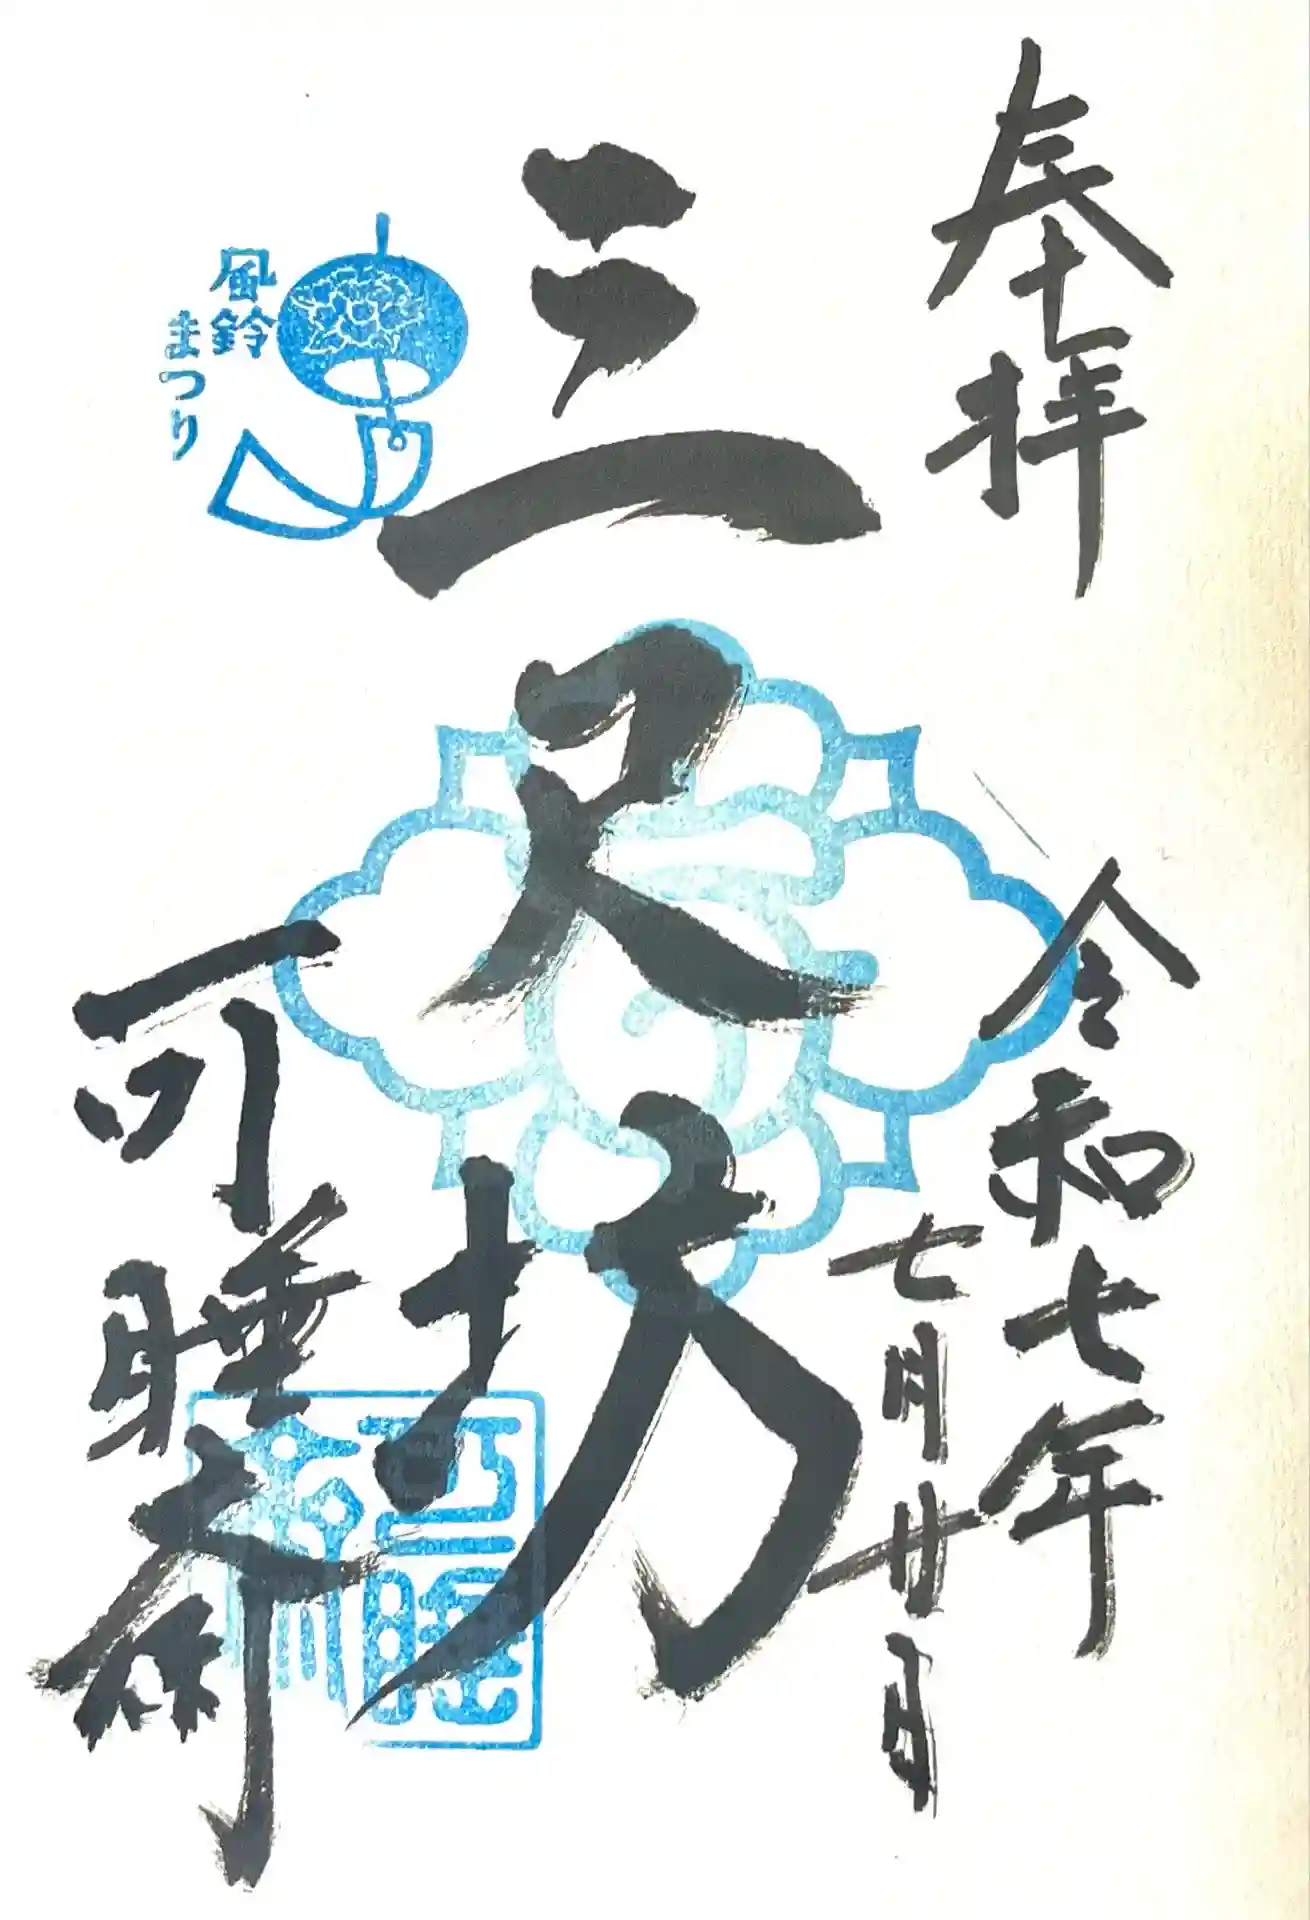 奉拝
令和七年
七月廿日
三尺坊
風鈴
まつり
可睡斎